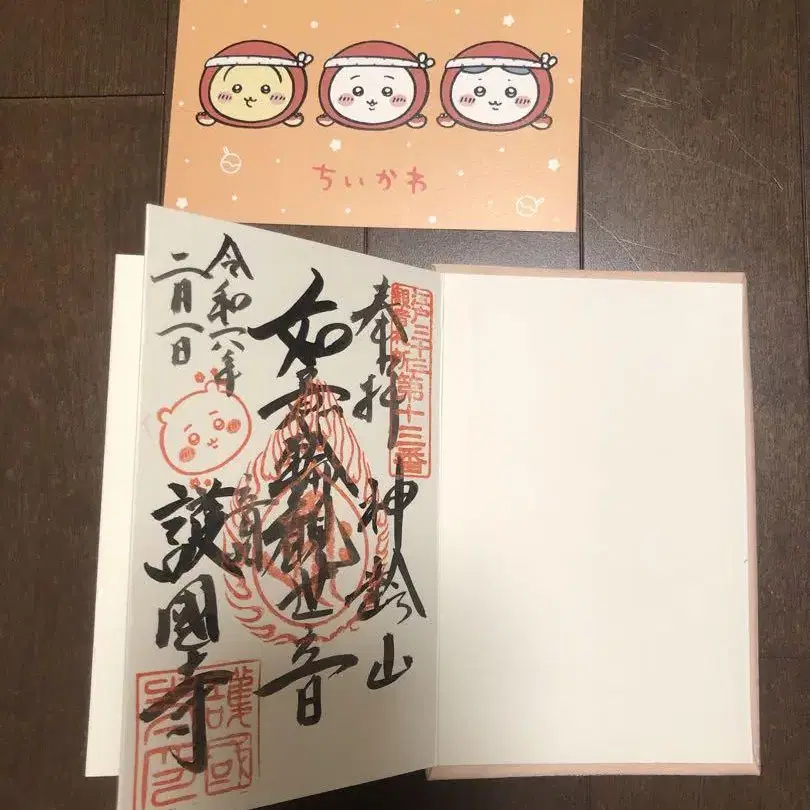 ちいかわ
江戸三十三
観音札所
第十三番
奉拝
神齢山
如意輪観世音
音羽
護國寺
令和六年
二月一日